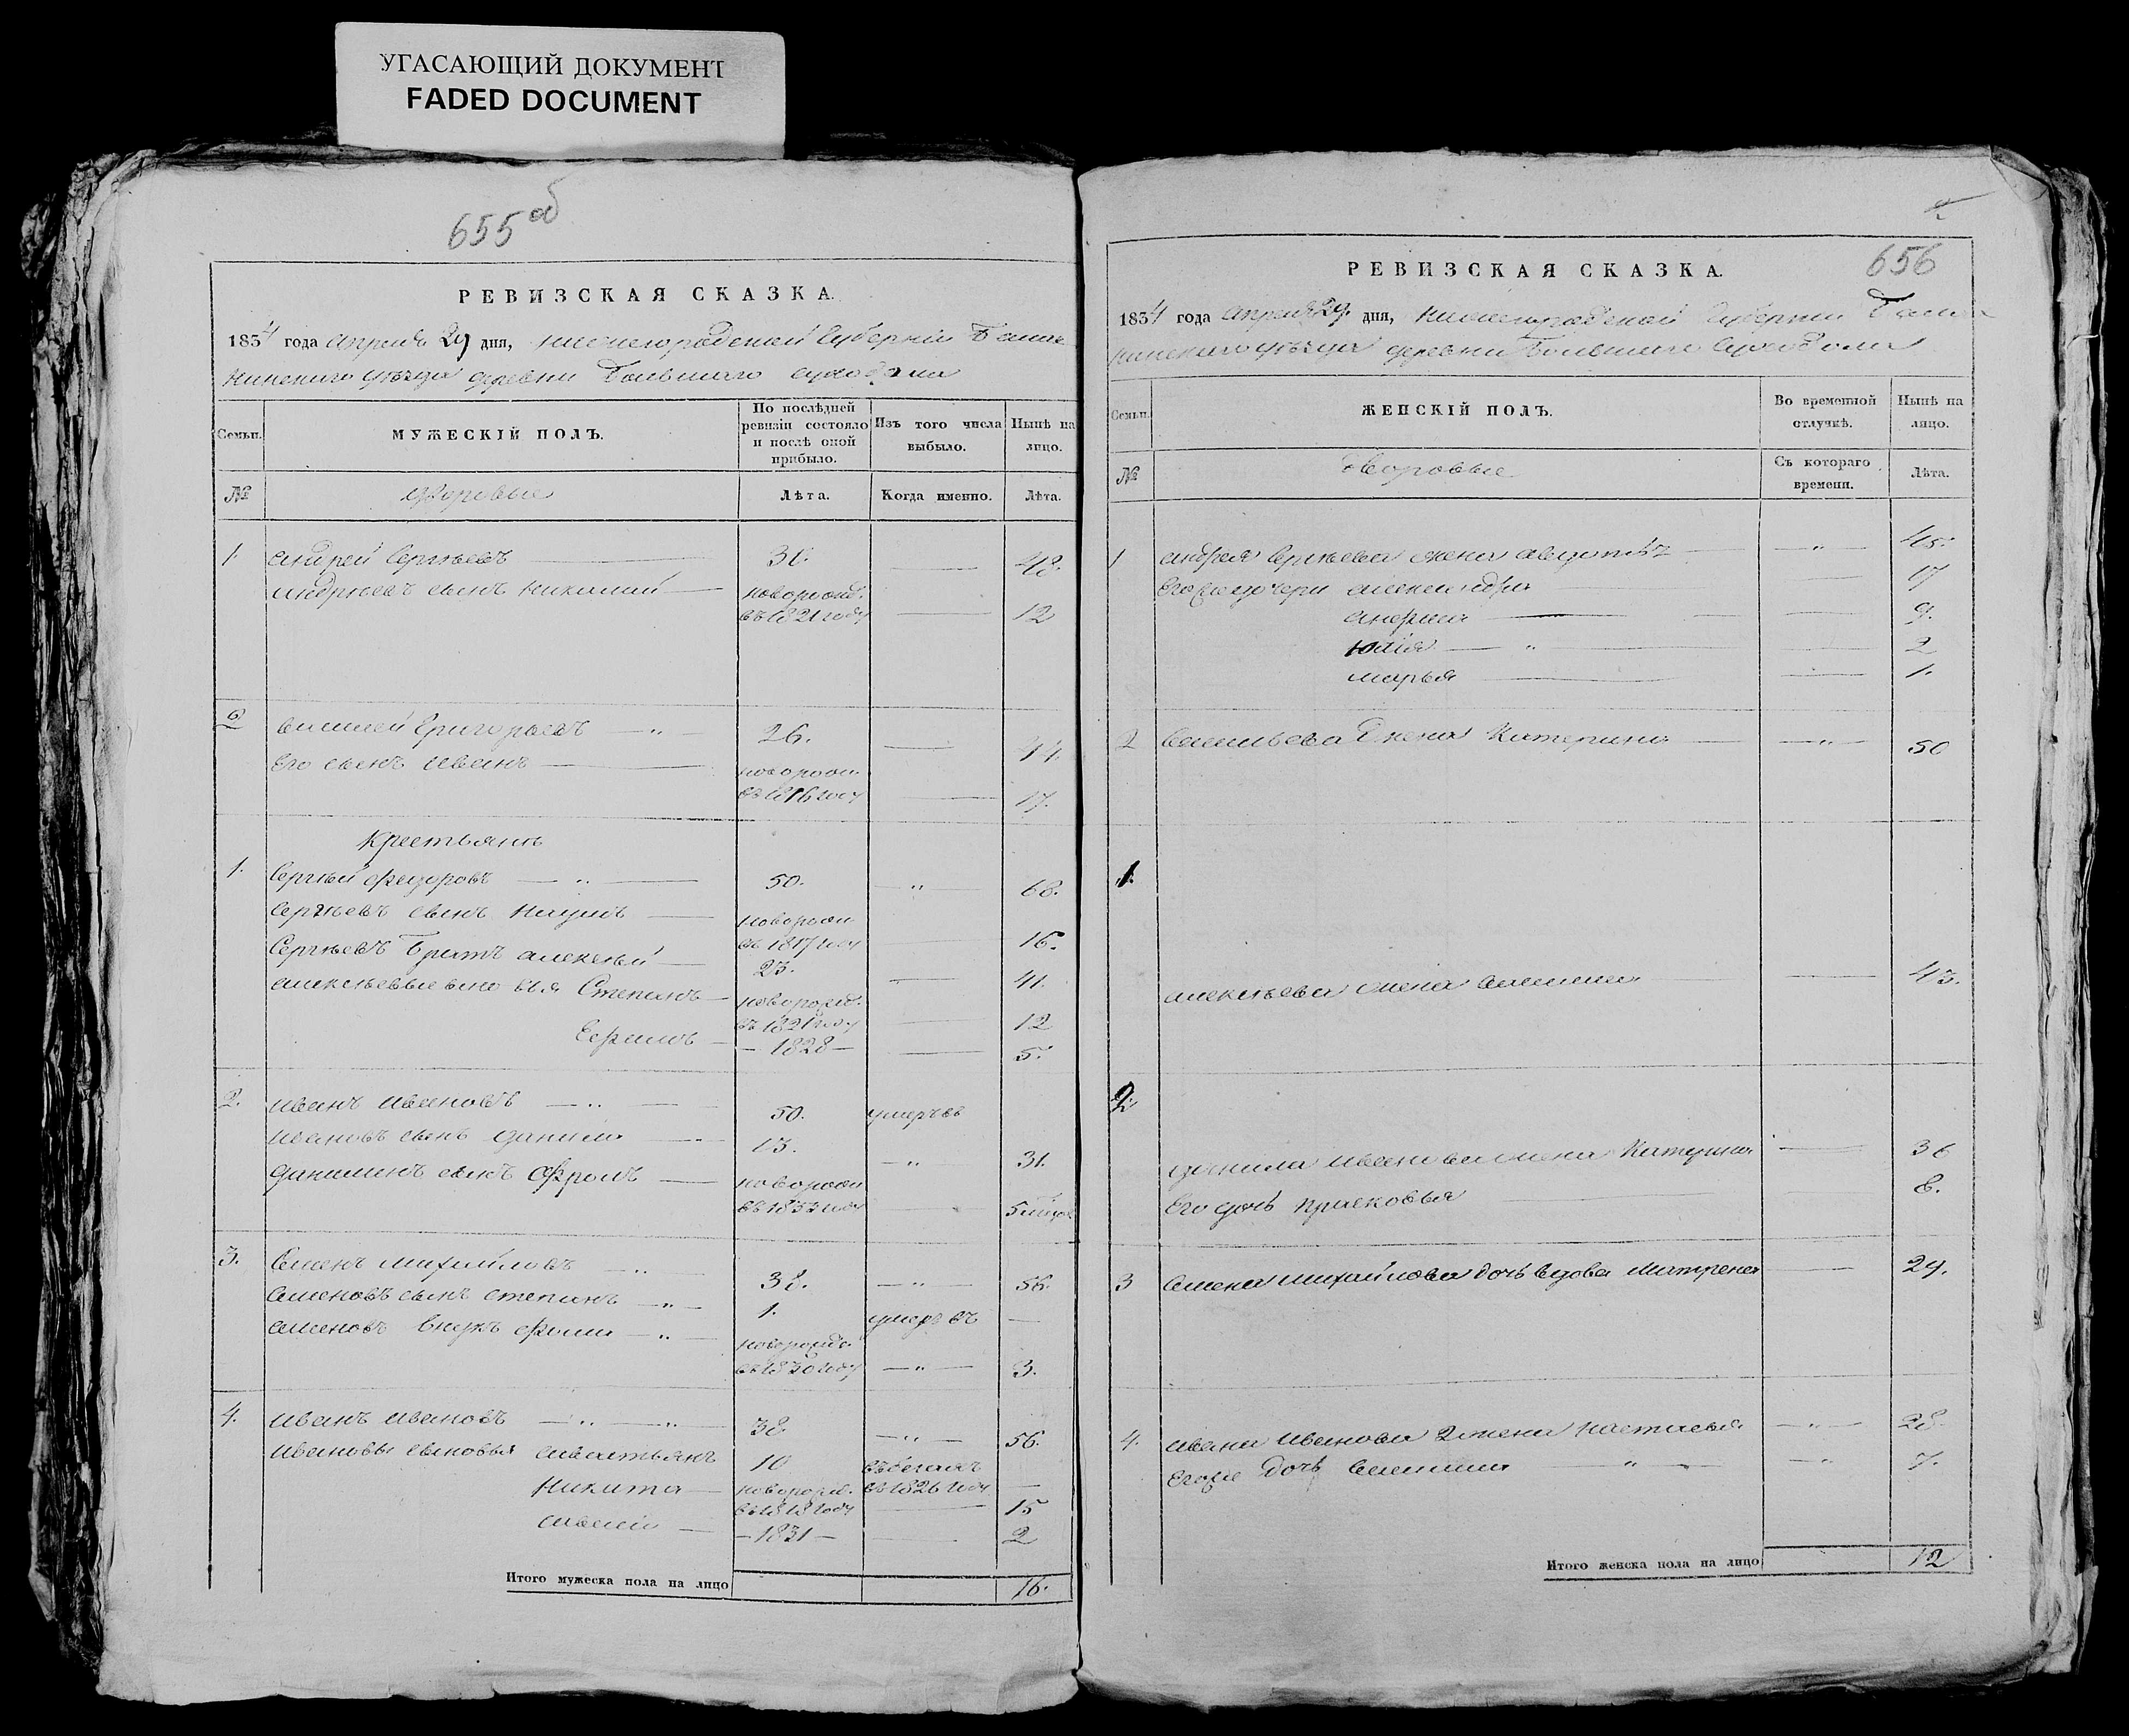 УГАСАЮЩИЙ ДОКУМЕНТ
FADED DOCUMENT
655 об
РЕВИЗСКАЯ СКАЗКА.
1834 года апреля 29 дня, Нижегородской Губернии
уезда деревни Большаго Суходола
Семьи.
МУЖЕСКІЙ ПОЛЪ.
По послѣдней ревизіи состояло и послѣ оной прибыло.
Изъ того числа выбыло.
Нынѣ на лицо.
№
дворовые
Лѣта.
Когда именно.
Лѣта.
1 Андрей Сергѣевъ 30. 48.
Андреевъ сынъ Николай новорожд.
въ 1821 году 12
2 Василей Григорьевъ 26. 44.
Его сынъ Иванъ новорож
въ 1816 году 17.
Крестьянъ
1. Сергѣй Федоровъ 50. 68.
Сергѣевъ сынъ новорож
въ 1817 году 16.
Сергѣевъ Братъ Алексѣй 23. 41.
Алексѣевы сыновья Степанъ новорожд.
въ 1821 году 12
Ефимъ — 1828 — 5.
2. Иванъ Ивановъ 50. умеръ въ
Ивановъ сынъ Данила 13. 31.
Данилинъ сынъ Фролъ новорож
въ 1833 году
3. Семенъ Михайловъ 38. 56.
Семеновъ сынъ Степанъ 1. умеръ въ —
Семеновъ внукъ Фома новорожд.
въ 1830 году 3.
4. Иванъ Ивановъ 38. 56.
Ивановы сыновья 10 въ бегахъ
въ 1826 году —
Никита новорожд.
въ 1818 году 15
— 1831 — 2
Итого мужеска пола на лицо 16.
656
РЕВИЗСКАЯ СКАЗКА.
1834 года апреля 29 дня, Нижегородской Губернии
уезда деревни Большаго Суходола
Семьи.
ЖЕНСКІЙ ПОЛЪ.
Во временной отлучкѣ.
Нынѣ на лицо.
№
дворовые
Съ котораго времени.
Лѣта.
1 Андрея Сергѣева жена 45.
Егоже дочери Александра 17
9.
Юлія 2
Марья 1.
2 Васильева жена Катерина 50
1.
Алексѣева жена 43.
2
Данила Иванова жена Катерина 36
Его дочь Прасковья 8.
3 Семена Михайлова дочь вдова Матрена 29.
4. Ивана Иванова 2 жена Настасья 28.
Егоже дочь 7.
Итого женска пола на лицо 12